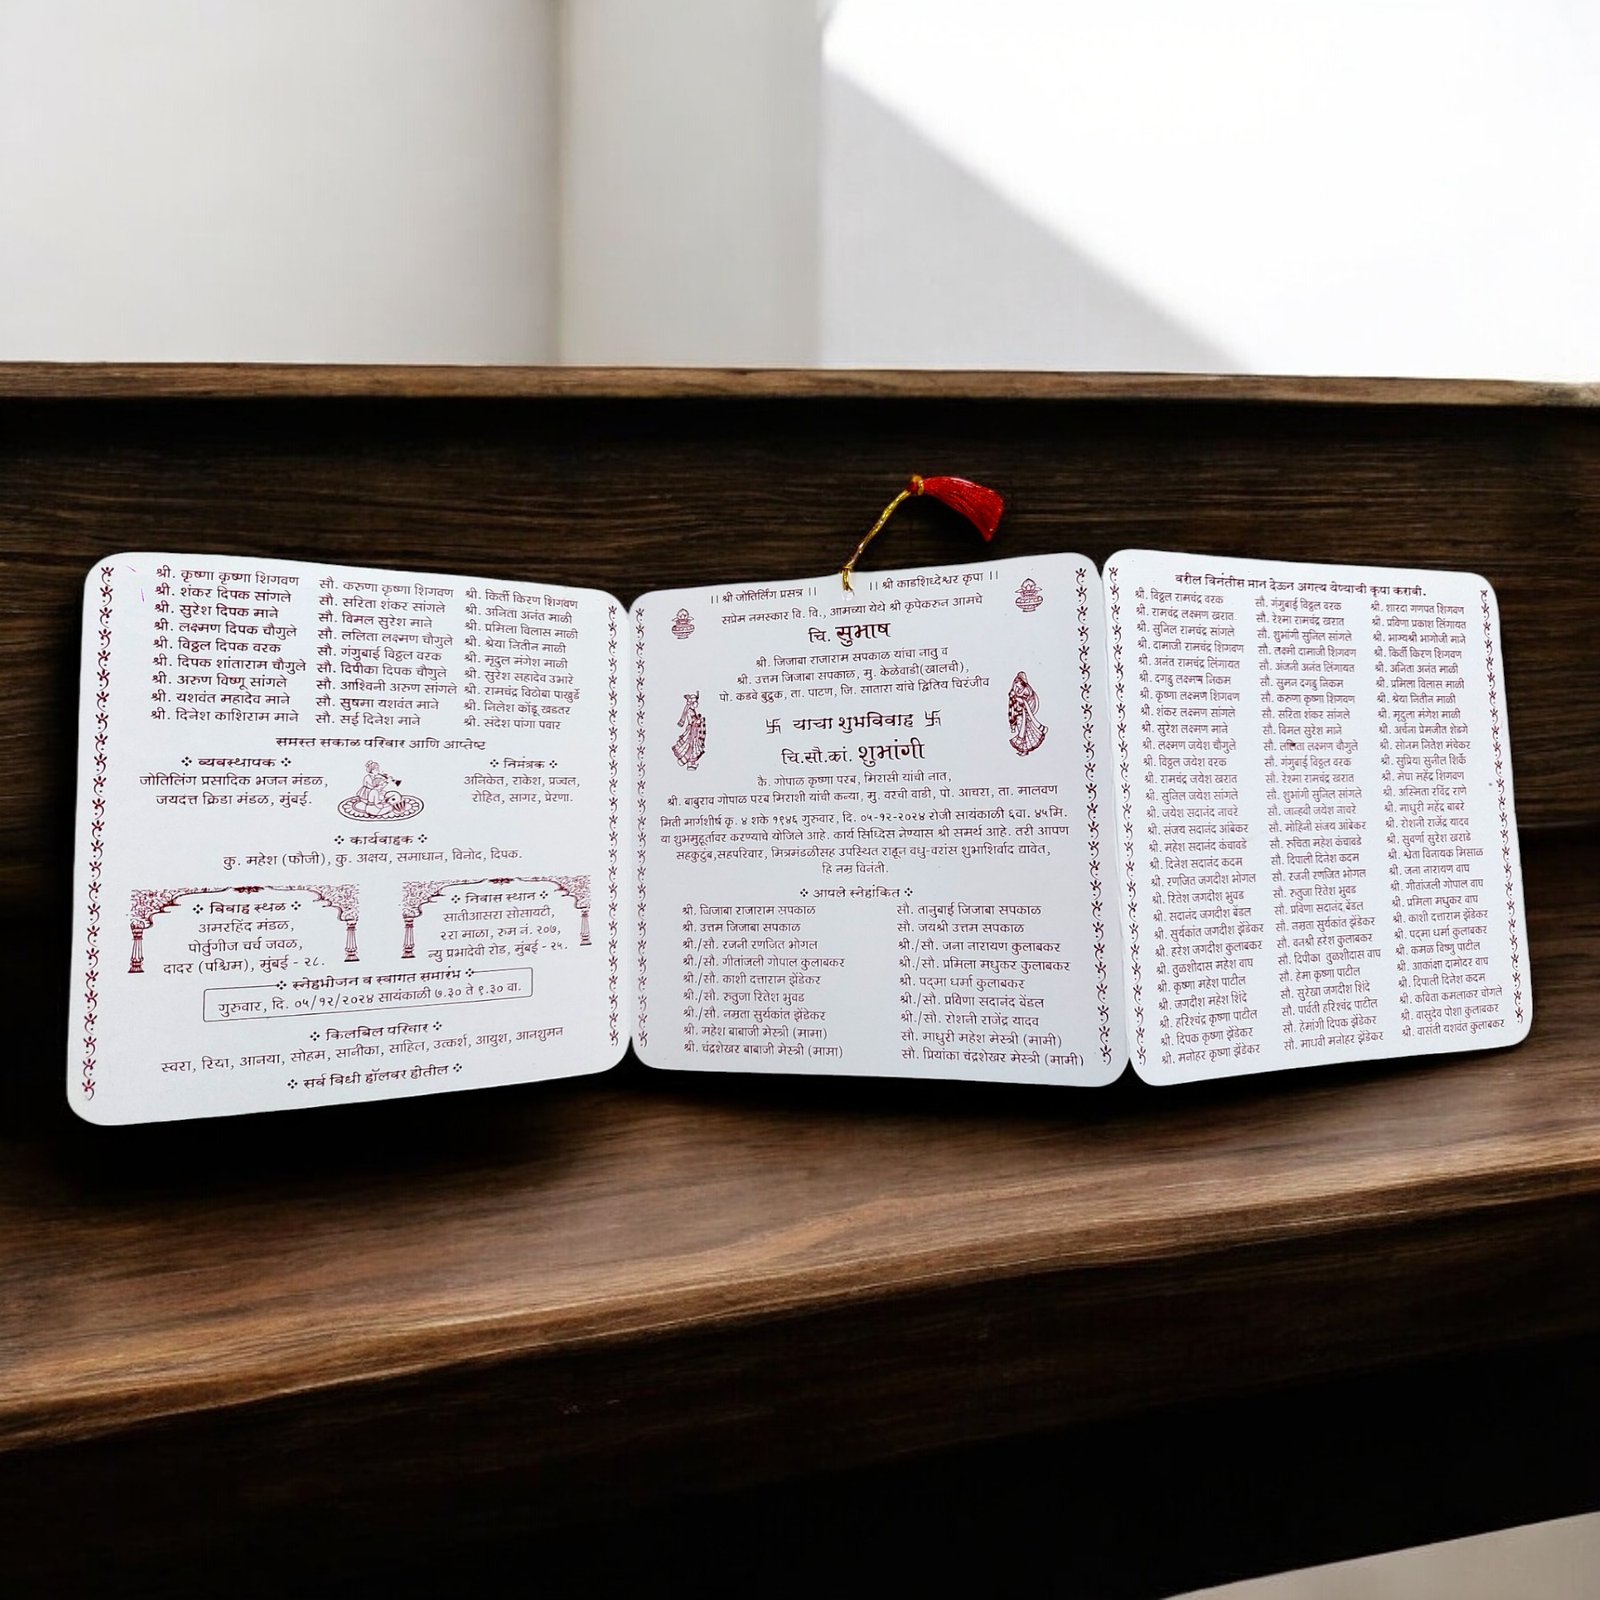 श्री. कृष्णा कृष्णा शिगवण सौ. करुणा कृष्णा शिगवण श्री. किर्ती किरण शिगवण
श्री. शंकर दिपक सांगले सौ. सरिता शंकर सांगले श्री. अनिता अनंत माळी
श्री. सुरेश दिपक माने सौ. विमल सुरेश माने श्री. प्रमिला विलास माळी
श्री. लक्ष्मण दिपक चौगुले सौ. ललिता लक्ष्मण चौगुले श्री. श्रेया नितीन माळी
श्री. विठ्ठल दिपक वरक सौ. गंगुबाई विठ्ठल वरक श्री. मृदुल मंगेश माळी
श्री. दिपक शांताराम चौगुले सौ. दिपीका दिपक चौगुले श्री. सुरेश सहादेव उभारे
श्री. अरुण विष्णू सांगले सौ. आश्विनी अरुण सांगले श्री. रामचंद्र विठोबा पाखुर्डे
श्री. यशवंत महादेव माने सौ. सुषमा यशवंत माने श्री. निलेश कोंडू खडतर
श्री. दिनेश काशिराम माने सौ. सई दिनेश माने श्री. संदेश पांगा पवार
समस्त सकाळ परिवार आणि आप्तेष्ट
व्यवस्थापक
जोतिलिंग प्रसादिक भजन मंडळ,
जयदत्त क्रिडा मंडळ, मुंबई.
निमंत्रक
अनिकेत, राकेश, प्रज्वल,
रोहित, सागर, प्रेरणा.
कार्यवाहक
कु. महेश (फौजी), कु. अक्षय, समाधान, विनोद, दिपक.
विवाह स्थळ
अमरहिंद मंडळ,
पोर्तुगीज चर्च जवळ,
दादर (पश्चिम), मुंबई - २८.
निवास स्थान
सातीआसरा सोसायटी,
२रा माळा, रुम नं. २०७,
न्यु प्रभादेवी रोड, मुंबई - २५.
स्नेहभोजन व स्वागत समारंभ
गुरुवार, दि. ०५/१२/२०२४ सायंकाळी ७.३० ते ९.३० वा.
किलबिल परिवार
स्वरा, रिया, आनया, सोहम, सानीका, साहिल, उत्कर्श, आयुश, आनशुमन
सर्व विधी हॉलवर होतील
।। श्री जोतिर्लिंग प्रसन्न ।। ।। श्री काडशिध्देश्वर कृपा ।।
सप्रेम नमस्कार वि. वि., आमच्या येथे श्री कृपेकरुन आमचे
चि. सुभाष
श्री. जिजाबा राजाराम सपकाळ यांचा नातु व
श्री. उत्तम जिजाबा सपकाळ, मु. केळेवाडी(खालची),
पो. कडवे बुद्रुक, ता. पाटण, जि. सातारा यांचे द्वितिय चिरंजीव
卐 याचा शुभविवाह 卐
चि.सौ.कां. शुभांगी
कै. गोपाळ कृष्णा परब, मिरासी यांची नात,
श्री. बाबुराव गोपाळ परब मिराशी यांची कन्या, मु. वरची वाडी, पो. आचरा, ता. मालवण
मिती मार्गशीर्ष कृ. ४ शके १९४६ गुरुवार, दि. ०५-१२-२०२४ रोजी सायंकाळी ६वा. ४५मि.
या शुभमुहूर्तावर करण्याचे योजिले आहे. कार्य सिध्दिस नेण्यास श्री समर्थ आहे. तरी आपण
सहकुटुंब,सहपरिवार, मित्रमंडळीसह उपस्थित राहून वधु-वरांस शुभाशिर्वाद द्यावेत,
हि नम्र विनंती.
आपले स्नेहांकित
श्री. जिजाबा राजाराम सपकाळ सौ. तानुबाई जिजाबा सपकाळ
श्री. उत्तम जिजाबा सपकाळ सौ. जयश्री उत्तम सपकाळ
श्री./सौ. रजनी रणजित भोगल श्री./सौ. जना नारायण कुलाबकर
श्री./सौ. गीतांजली गोपाल कुलाबकर श्री./सौ. प्रमिला मधुकर कुलाबकर
श्री./सौ. काशी दत्ताराम झेंडेकर श्री. पद्मा धर्मा कुलाबकर
श्री./सौ. रुतुजा रितेश भुवड श्री./सौ. प्रविणा सदानंद बेंडल
श्री./सौ. नम्रता सुर्यकांत झेंडेकर श्री./सौ. रोशनी राजेंद्र यादव
श्री. महेश बाबाजी मेस्त्री (मामा) सौ. माधुरी महेश मेस्त्री (मामी)
श्री. चंद्रशेखर बाबाजी मेस्त्री (मामा) सौ. प्रियांका चंद्रशेखर मेस्त्री (मामी)
वरील विनंतीस मान देऊन अगत्य येण्याची कृपा करावी.
श्री. विठ्ठल रामचंद्र वरक सौ. गंगुबाई विठ्ठल वरक श्री. शारदा गणपत शिगवण
श्री. रामचंद्र लक्ष्मण खरात सौ. रेश्मा रामचंद्र खरात श्री. प्रविणा प्रकाश लिंगायत
श्री. सुनिल रामचंद्र सांगले सौ. शुभांगी सुनिल सांगले श्री. भाग्यश्री भागोजी माने
श्री. दामाजी रामचंद्र शिगवण सौ. लक्ष्मी दामाजी शिगवण श्री. किर्ती किरण शिगवण
श्री. अनंत रामचंद्र लिंगायत सौ. अंजनी अनंत लिंगायत श्री. अनिता अनंत माळी
श्री. दगडु लक्ष्मण निकम सौ. सुमन दगडु निकम श्री. प्रमिला विलास माळी
श्री. कृष्णा लक्ष्मण शिगवण सौ. करुणा कृष्णा शिगवण श्री. श्रेया नितीन माळी
श्री. शंकर लक्ष्मण सांगले सौ. सरिता शंकर सांगले श्री. मृदुला मंगेश माळी
श्री. सुरेश लक्ष्मण माने सौ. विमल सुरेश माने श्री. अर्चना प्रेमजीत शेडगे
श्री. लक्ष्मण जयेश चौगुले सौ. ललिता लक्ष्मण चौगुले श्री. सोनम नितेश मंचेकर
श्री. विठ्ठल जयेश वरक सौ. गंगुबाई विठ्ठल वरक श्री. सुप्रिया सुनील शिर्के
श्री. रामचंद्र जयेश खरात सौ. रेश्मा रामचंद्र खरात श्री. मेघा महेंद्र शिगवण
श्री. सुनिल जयेश सांगले सौ. शुभांगी सुनिल सांगले श्री. अस्मिता रविंद्र राणे
श्री. जयेश सदानंद नाचरे सौ. जान्हवी जयेश नाचरे श्री. माधुरी महेंद्र बाबरे
श्री. संजय सदानंद आंबेकर सौ. मोहिनी संजय आंबेकर श्री. रोशनी राजेंद्र यादव
श्री. महेश सदानंद कंचावडे सौ. रुचिता महेश कंचावडे श्री. सुवर्णा सुरेश खराडे
श्री. दिनेश सदानंद कदम सौ. दिपाली दिनेश कदम श्री. श्वेता विनायक मिसाळ
श्री. रणजित जगदीश भोगल सौ. रजनी रणजीत भोगल श्री. जना नारायण वाघ
श्री. रितेश जगदीश भुवड सौ. रुतुजा रितेश भुवड श्री. गीतांजली गोपाल वाघ
श्री. सदानंद जगदीश बेंडल सौ. प्रविणा सदानंद बेंडल श्री. प्रमिला मधुकर वाघ
श्री. सुर्यकांत जगदीश झेंडेकर सौ. नम्रता सुर्यकांत झेंडेकर श्री. काशी दत्ताराम झेंडेकर
श्री. हरेश जगदीश कुलाबकर सौ. वनश्री हरेश कुलाबकर श्री. पद्मा धर्मा कुलाबकर
श्री. तुळशीदास महेश वाघ सौ. दिपीका तुळशीदास वाघ श्री. कमळ विष्णु पाटील
श्री. कृष्णा महेश पाटील सौ. हेमा कृष्णा पाटील श्री. आकांक्षा दामोदर वाघ
श्री. जगदीश महेश शिंदे सौ. सुरेखा जगदीश शिंदे श्री. दिपाली दिनेश कदम
श्री. हरिश्चंद्र कृष्णा पाटील सौ. पार्वती हरिश्चंद्र पाटील श्री. कविता कमलाकर चोगले
श्री. दिपक कृष्णा झेंडेकर सौ. हेमांगी दिपक झेंडेकर श्री. वासुदेव पोशा कुलाबकर
श्री. मनोहर कृष्णा झेंडेकर सौ. माधवी मनोहर झेंडेकर श्री. वासंती यशवंत कुलाबकर